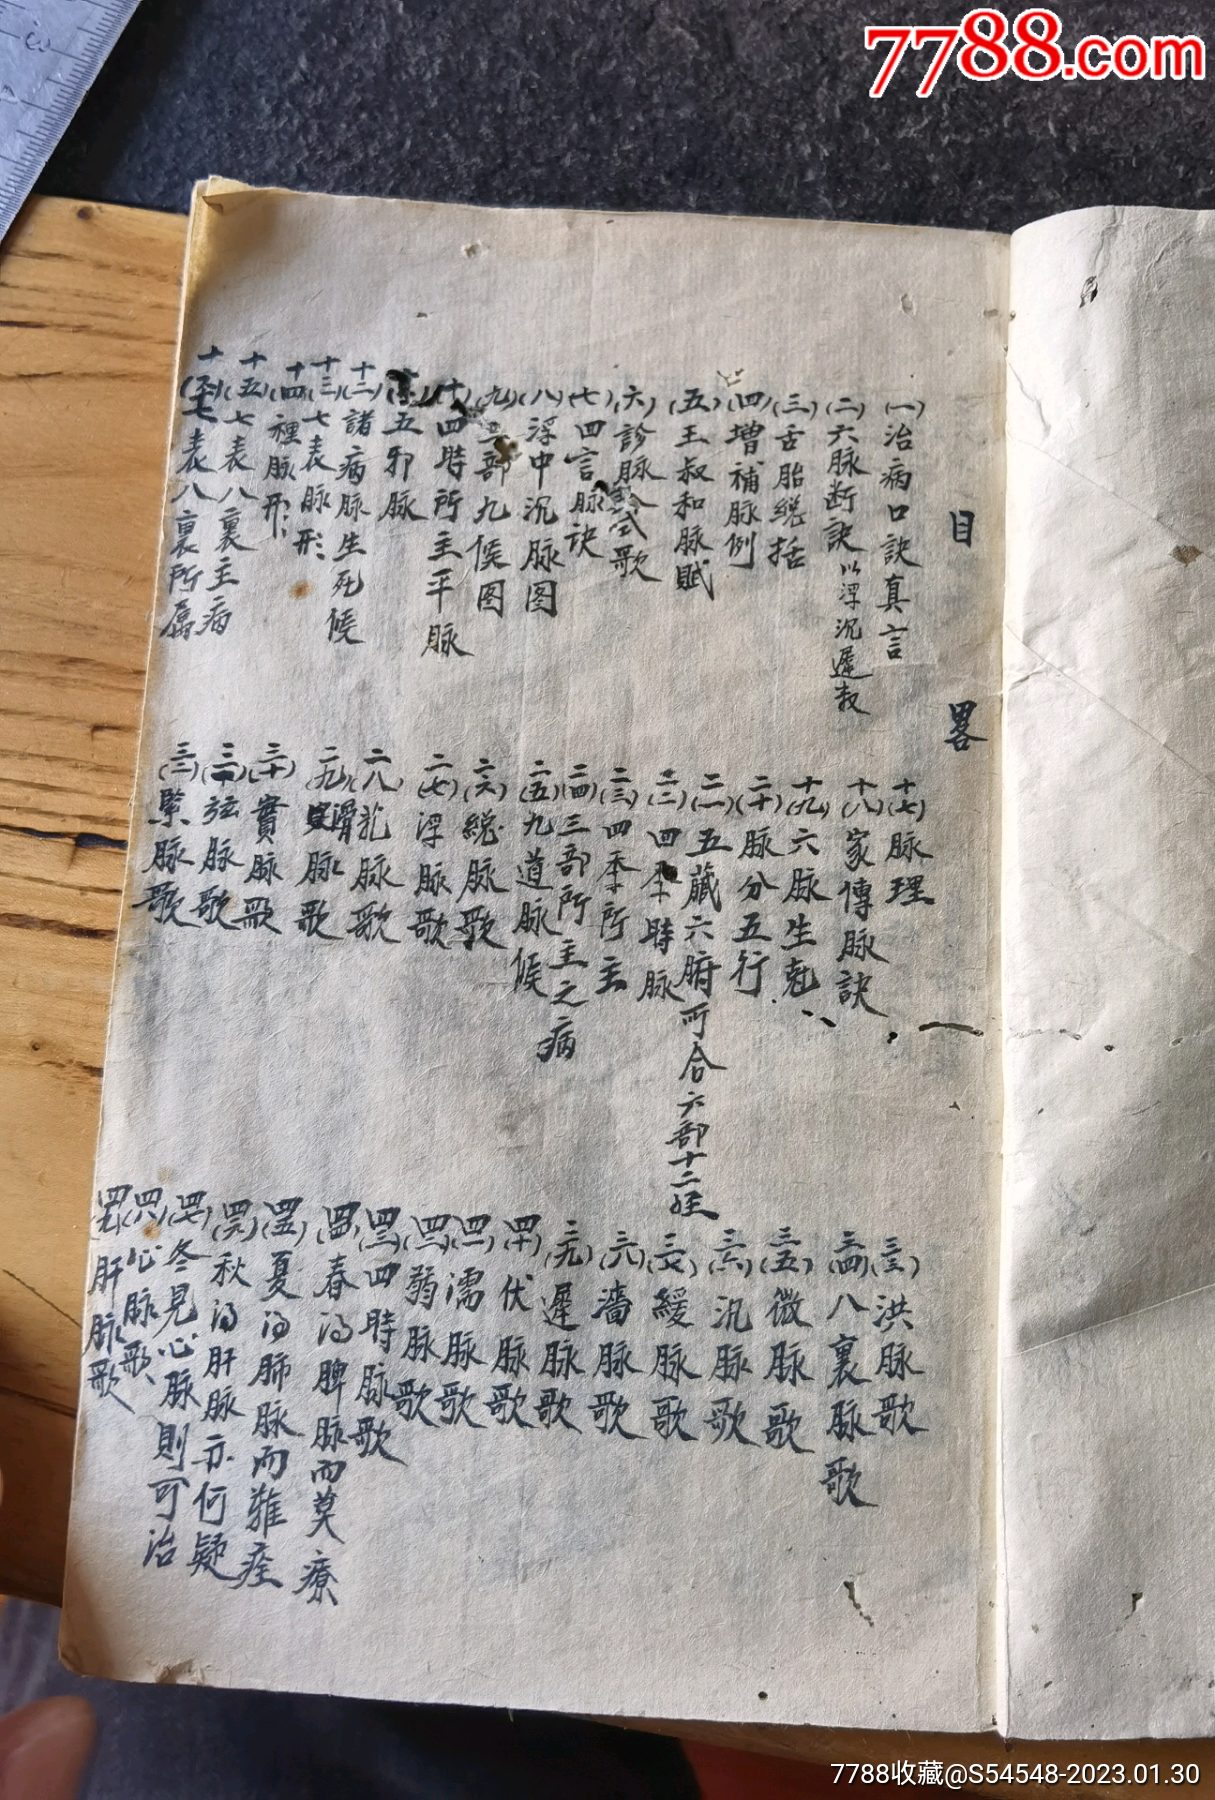 7788.com
目畧
(一)治病口訣真言
(二)六脉断訣以浮沉遲数
(三)舌胎總括
(四)增補脉例
(五)王叔和脉賦
(六)診脉入式歌
(七)四言脉訣
(八)浮中沉脉图
(九)三部九候图
(十)四時所主平脉
五邪脉
十二(諸病脉生死候
十三(七表脉形
十四(裡脉形
十五(七表八裏主病
七表八裏所属
十七(脉理
十八(家傳脉訣
十九(六脉生尅
二十(脉分五行
二一(五臟六腑所合六部十二経
二二(四季時脉
二三(四季所主
二四(三部所主之病
二五(九道脉候
二六(總脉歌
二七(浮脉歌
二八(芤脉歌
二九(滑脉歌
三十(實脉歌
三一(弦脉歌
三二(緊脉歌
三三(洪脉歌
三四(八裏脉歌
三五(微脉歌
三六(沉脉歌
三七(緩脉歌
三八(濇脉歌
三九(遲脉歌
四十(伏脉歌
四一(濡脉歌
四二(弱脉歌
四三(四時脉歌
四四(春得脾脉而莫療
四五(夏得肺脉而難痊
四六(秋得肝脉亦何疑
四七(冬見心脉則可治
四八(心脉歌
四九(肝脉歌
7788收藏@S54548-2023.01.30